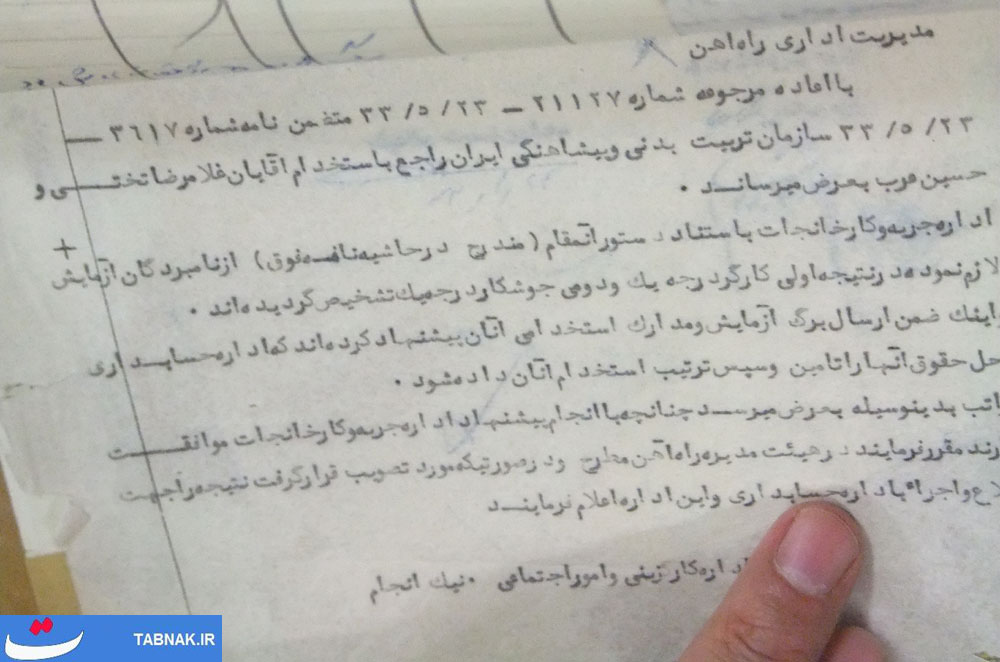 مدیریت اداری راه اهن
با اعاده مرجوعه شماره ۲۱۱۲۷ – ۲۳ /۵ /۳۳ متضمن نامه شماره ۳۶۱۷ —
۲۳ /۵ /۳۳ سازمان تربیت بدنی و پیشاهنگی ایران راجع باستخدام اقایان غلامرضا تختی و
حسین عرب بعرض میرساند .
اداره جریه و کارخانجات باستناد دستور انمقام ( مندرج در حاشیه نامه فوق ) از نامبردگان آزمایش
لازم نموده در نتیجه اولی کارگر درجه یک و دومی جوشکار درجه یک تشخیص گردیده اند .
اینک ضمن ارسال برگ آزمایش و مدارک استخدامی آنان پیشنهاد کرده اند که اداره حسابداری
حل حقوق آنها را تامین و سپس ترتیب استخدام آنان داده شود .
اتب بدینوسیله بعرض میرسد چنانچه با انجام پیشنهاد اداره جریه و کارخانجات موافقت
رند مقرر فرمایند در هیئت مدیره راه آهن مطرح و در صورتیکه مورد تصویب قرار گرفت نتیجه را جهت
لاع و اجراء باداره حسابداری و این اداره اعلام فرمایند
اداره کارگزینی و امور اجتماعی . نیک انجام
TABNAK.IR